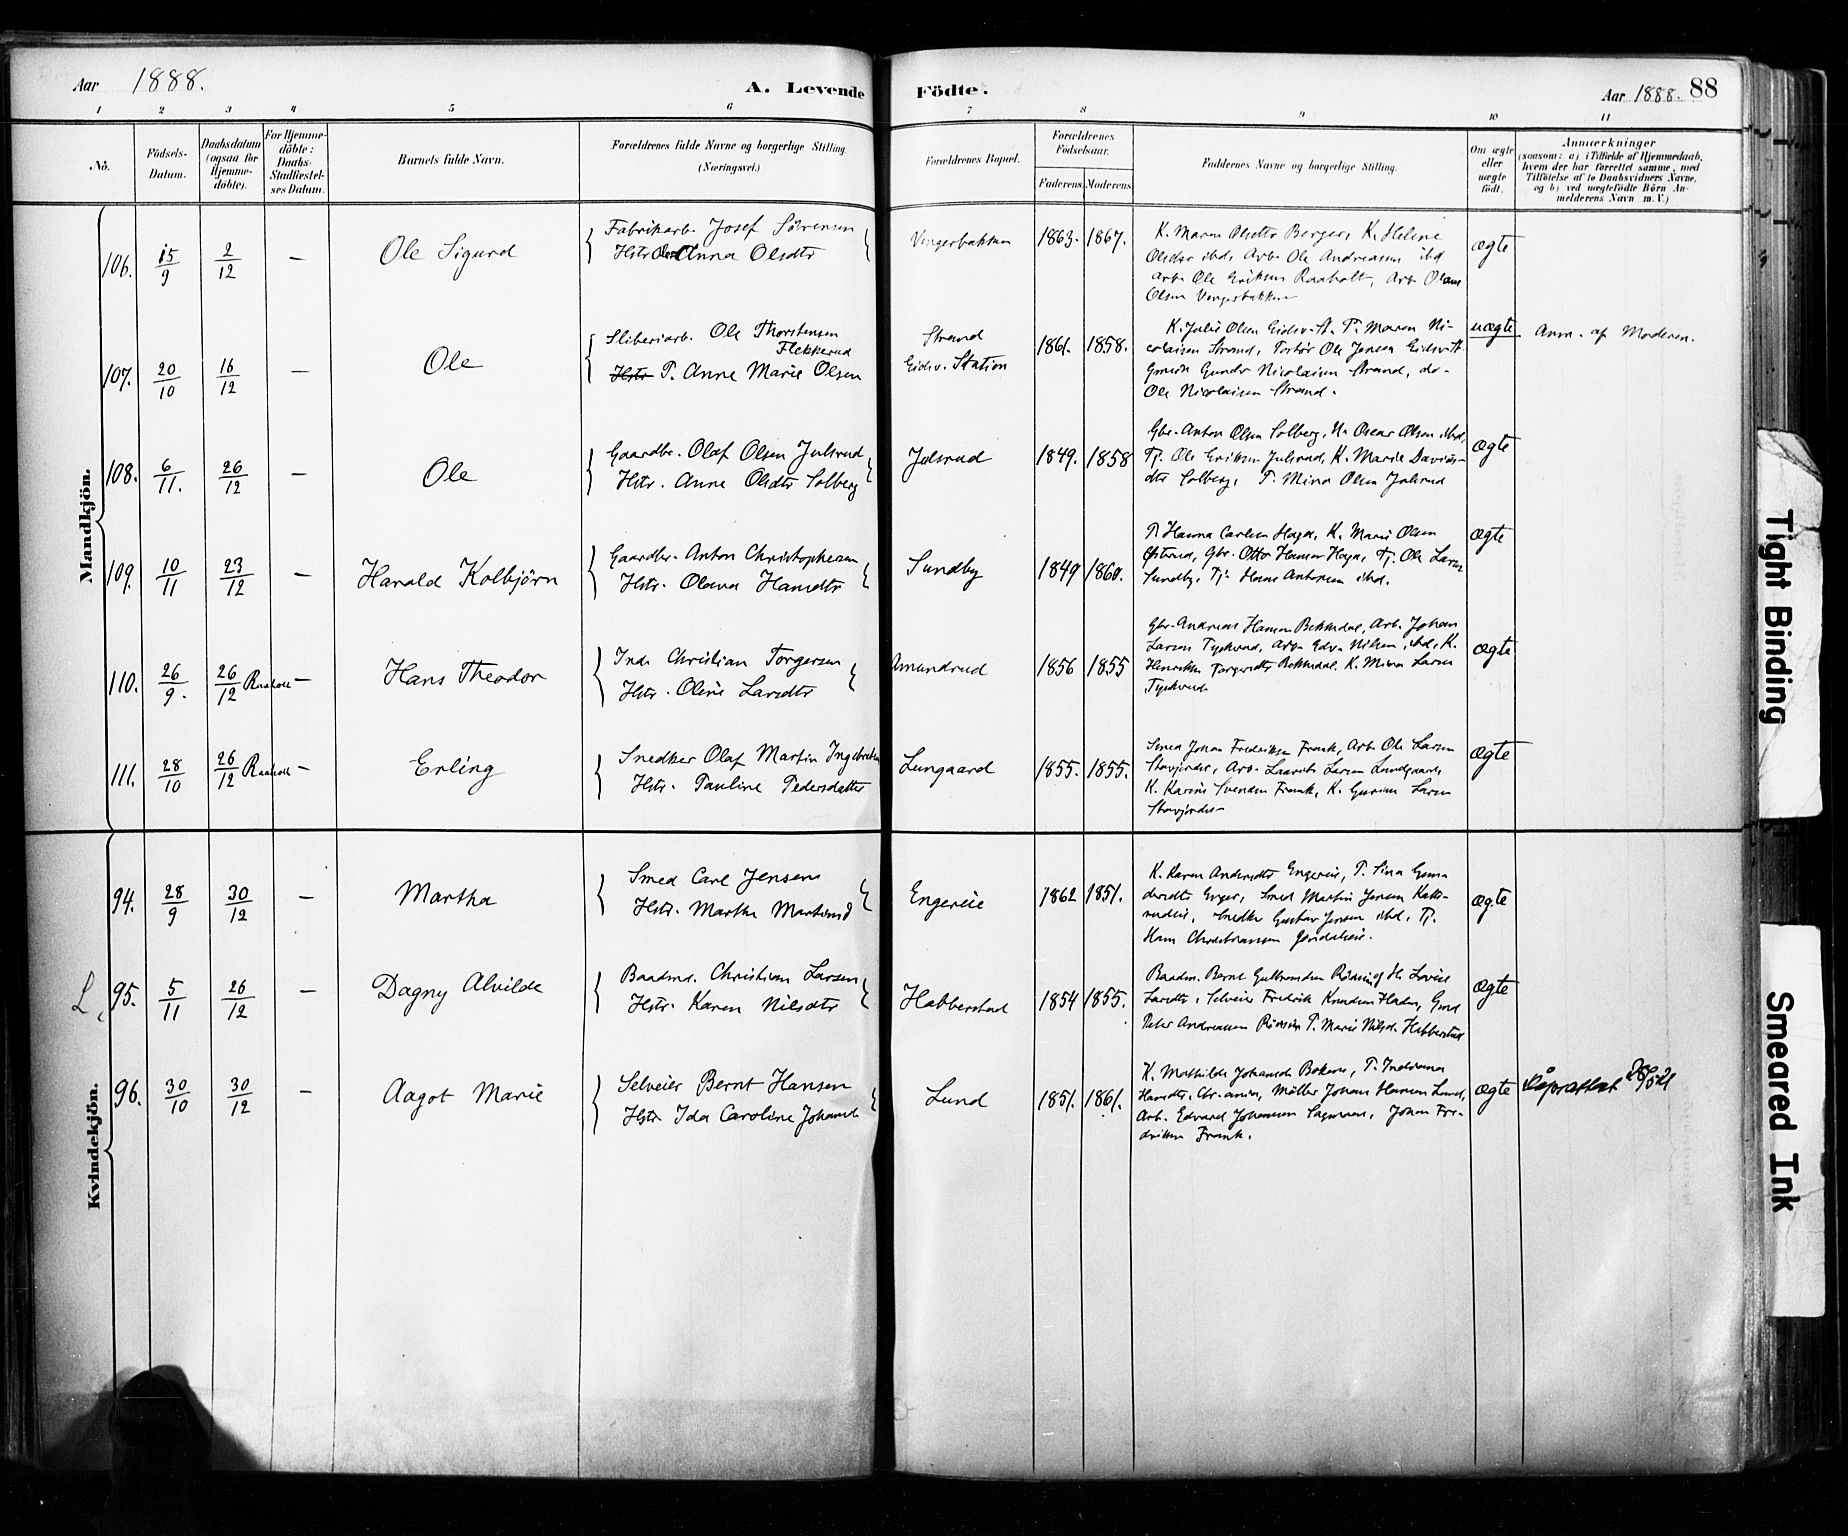 Aar 1888. A. Levende Födte. Aar 1888. 88
1 2 3 4 5 6 7 8 9 10 11
No. Födsels-Datum. Daabsdatum (ogsaa for Hjemmedöbte). For Hjemmedöbte: Daabs-Stadfæstelses Datum. Barnets fulde Navn. Forældrenes fulde Navne og borgerlige Stilling (Næringsvei.) Forældrenes Bopæl. Forældrenes Födselsaar. Faderens. Moderens. Faddernes Navne og borgerlige Stilling. Om ægte eller uægte födt. Anmærkninger (saasom: a) i Tilfælde af Hjemmedaab, hvem der har forrettet samme, med Tilföielse af to Daabsvidners Navne, og b) ved uægtefödte Börn Anmelderens Navn m. V.)
Mandkjön.
106. 15/9 2/12 — Ole Sigurd
Fabrikarb. Josef Sörensen
Hstr Anna Olsdtr
Vengerbakken 1863. 1867.
K. Maren Olsdtr Berger, K. Helene
Olsdtr ibd, Arb. Ole Andreasen ibd
Arb. Ole Eriksen Raaholt, Arb. Olaus
Olsen Vengerbakken
ægte
107. 20/10 16/12 — Ole
Sliberiarb. Ole Thorstensen
Flekkerud
Hstr P. Anne Marie Olsen
Strand
Eidsv. Station
1861. 1858.
K. Julie Olsen Eidsv. St. P. Maren Ni-
colaisen Strand, Ole Jensen Eidsv. St.
Gunder Nicolaisen Strand, do-
Ole Nicolaisen Strand.
uægte
Anm. af Moderen.
108. 6/11. 26/12 — Ole
Gaardbr. Olaf Olsen Julsrud
Hstr. Anne Olsdtr Solberg
Julsrud 1849. 1858
Gbr. Anton Olsen Solberg, Oscar Olsen ibd,
Tj. Ole Eriksen Julsrud, K. Marie Davids-
dtr Solberg, P. Mina Olsen Julsrud
ægte
109. 10/11 23/12 — Harald Kolbjörn
Gaardbr. Anton Christophersen
Hstr. Olava Hansdtr
Sundby 1849 1860.
P. Hanna Carlsen Haga, K. Marie Olsen
Gbr. Otto Hansen Haga, Tj. Ole Larsen
Sundby, Tj. Hans Antonsen ibd.
ægte
110. 26/9. 26/12 Raaholt — Hans Theodor
Inds Christian Torgersen
Hstr. Oline Larsdtr
Amundrud 1856 1855
Gbr. Andreas Hansen Bekkedal, Arb. Johan
Larsen Tyskerud, Arb. Edv. Nilsen ibd, K.
Henrikke Torgersdtr Bekkedal, K. Mina Larsen
Tyskerud
ægte
111. 28/10 26/12 Raaholt — Erling
Snedker Olaf Martin Ingebretsen
Hstr. Pauline Pedersdatter
Lungaard 1855. 1855.
Smed Johan Fredriksen Frank, Arb. Ole Larsen
Arb. Laurits Larsen Lundgaard
K. Karine Svendsen Frank, K. Larsen
ægte
Kvindekjön.
94. 28/9 30/12 — Martha
Smed Carl Jensen
Hstr. Martha Martinsd
Engereie 1862 1851.
K. Karen Andersdtr Engereie, P. Sina Gun-
dersdtr Enger, Smed Martin Jensen
Snedker Gustav Jensen ibd, Tj.
Hans Christiansen
ægte
L, 95. 5/11 26/12 — Dagny Alvilde
Baadmd. Christian Larsen
Hstr. Karen Nilsdtr
Habberstad 1854 1855.
Baadm. Bernt Gulbrandsen og H. Lovise
Larsdtr, Selveier Fredrik Knudsen
Peter Andreassen P. Marie Nilsd. Habberstad
ægte
96. 30/10 30/12 — Aagot Marie
Selveier Bernt Hansen
Hstr Ida Caroline Johansd
Lund 1851. 1861.
K. Mathilde Johansd. Bakken, P. Indiana
Hansdtr, Chr.ania, Möller Johan Hansen Lund,
Arb. Edvard Johansen Sagmoen, Johan Fre-
driksen Frank.
ægte
Tight Binding
Smeared Ink